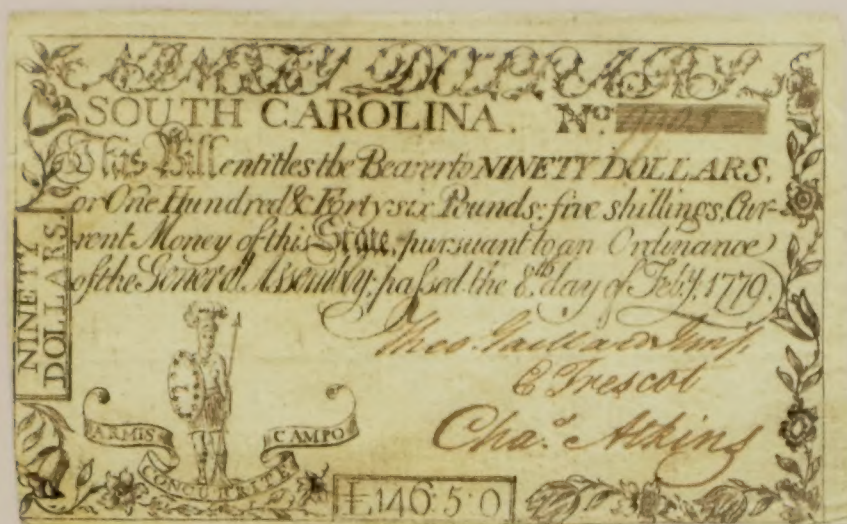 NINETY DOLLARS
SOUTH CAROLINA. No.
This Bill entitles the Bearer to NINETY DOLLARS,
or One Hundred & Forty six Pounds: five shillings, Cur-
rent Money of this State, pursuant to an Ordinance
of the General Assembly, paſsed the 8th. day of Feby. 1779.
NINETY
DOLLARS
Theo. Gaillard Junr.
Trescot
Chas. Atkins
ARMIS
CONCURRITE
CAMPO
£146:5:0